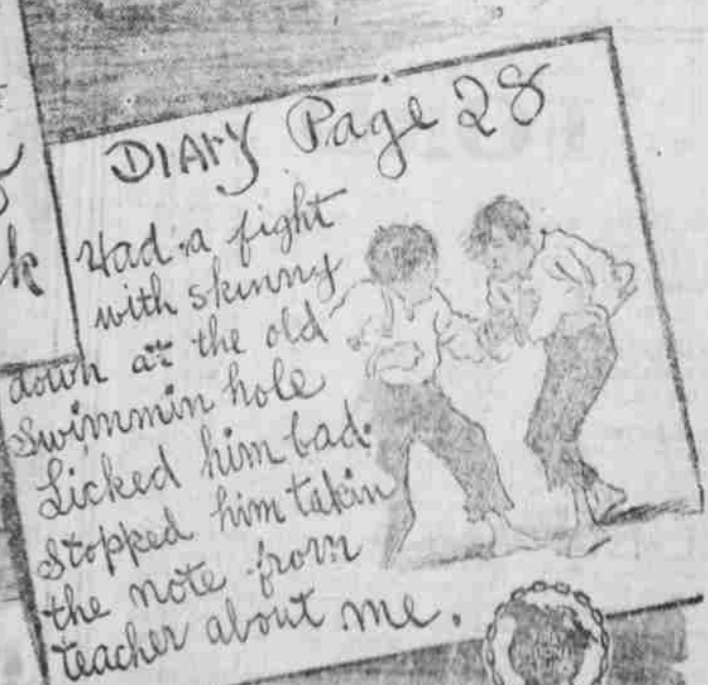 k
DIARY Page 28
Had a fight
with skinny
down at the old
Swimmin hole
Licked him bad.
Stopped him takin
the note from
teacher about me.
FIRST
NATIONAL